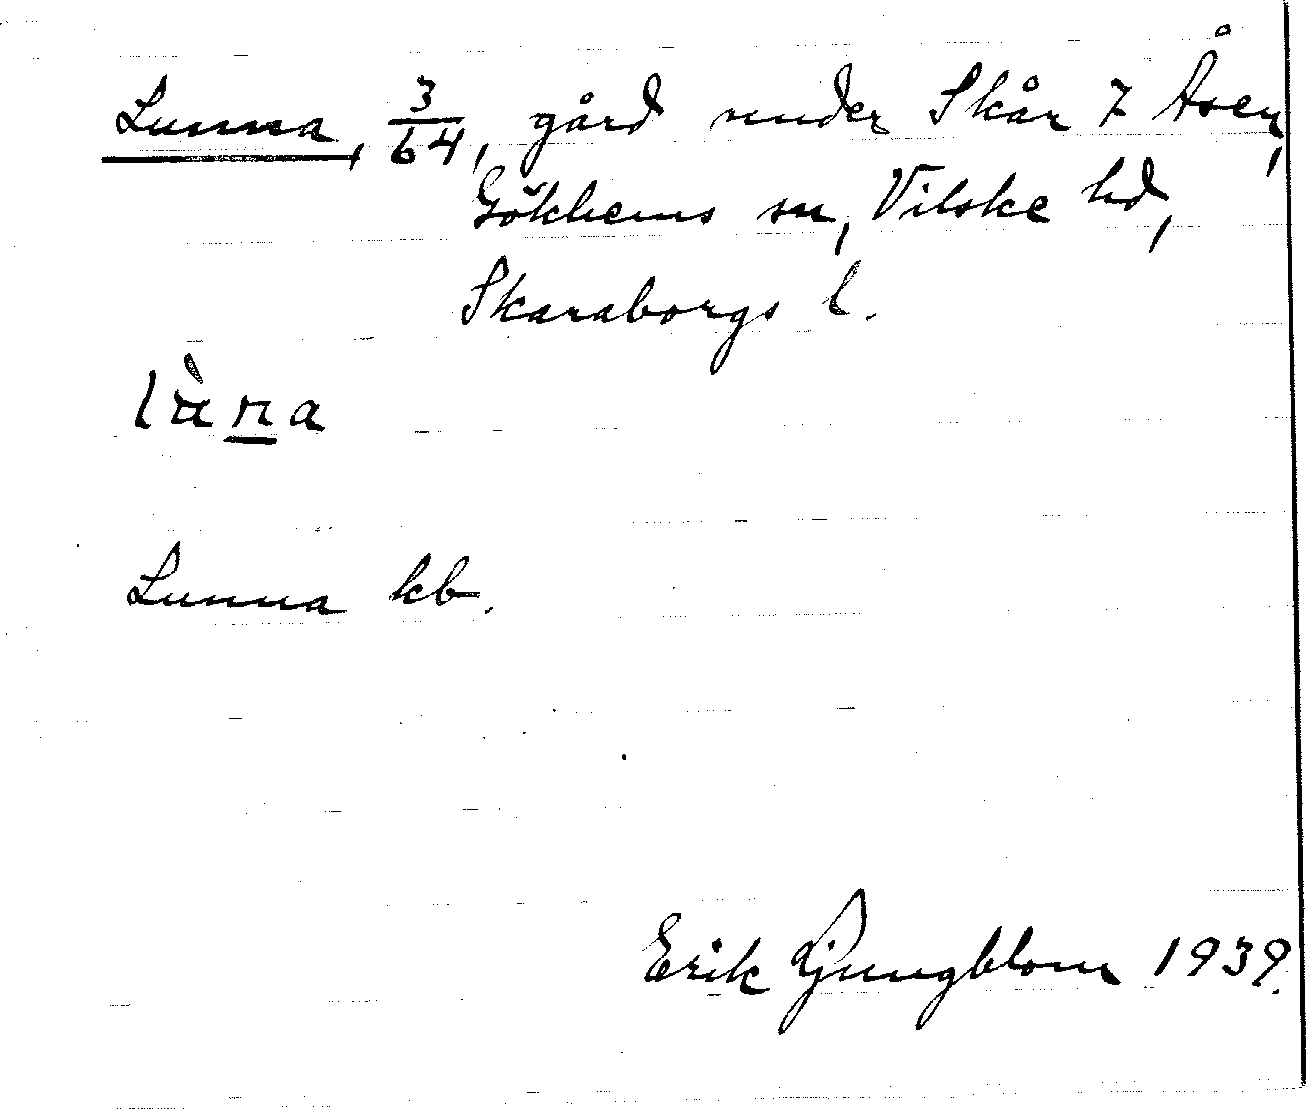 Lunna, 3/64, gård under Skår 7 Åsen,
Gökhems sn, Vilske hd,
Skaraborgs l.
Lunna kb.
Erik Ljungblom 1939.